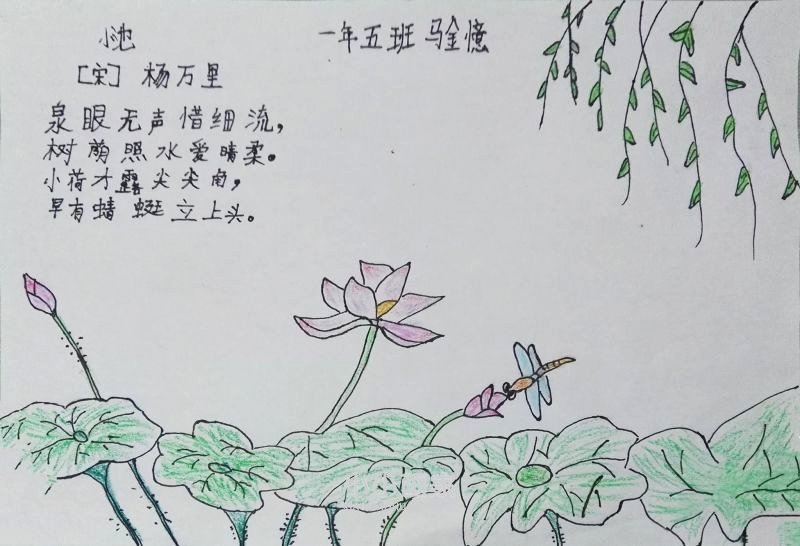 小池
一年五班 马金憶
[宋] 杨万里
泉眼无声惜细流,
树荫照水爱晴柔。
小荷才露尖尖角,
早有蜻蜓立上头。